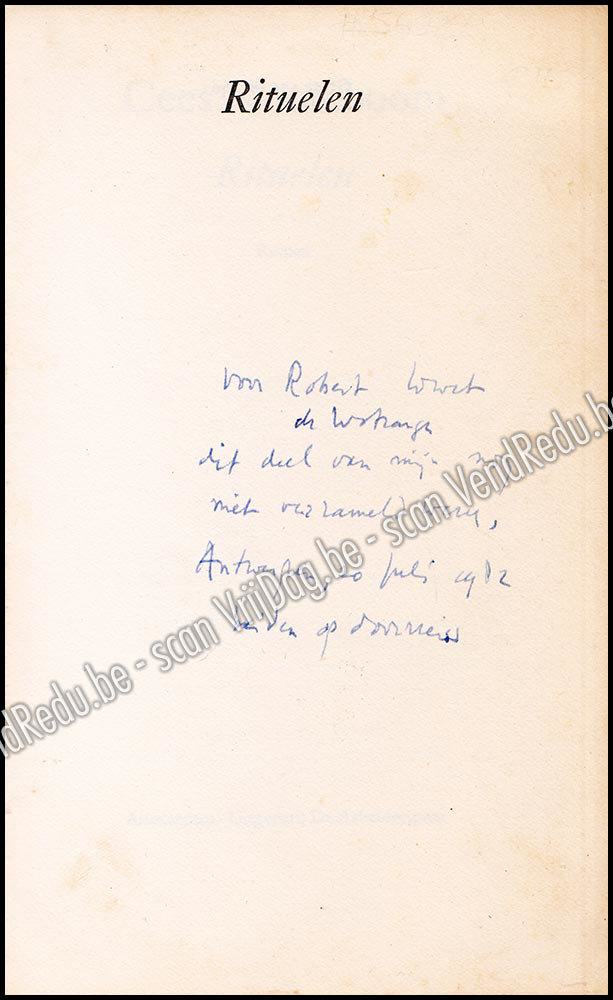 Rituelen
voor Robert Lowet
de Wotrenge
dit deel van mijn nog
niet verzameld werk,
Antwerpen, 20 juli 1982
beiden op doorreis
scan VrijDag.be - scan VendRedu.be
ndRedu.be -